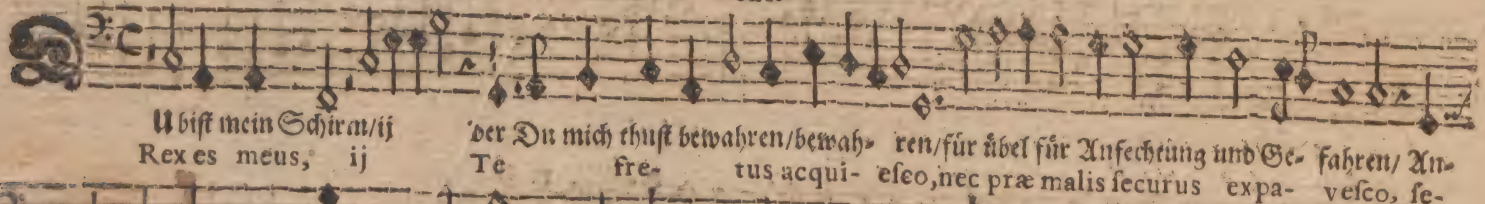 DU bist mein Schirm/ij der Du mich thust bewahren/bewah- ren/für übel für Anfechtung und Ge- fahren/ An-
Rex es meus, ij Te fre- tus acqui- esco, nec præ malis securus expa- vesco, se-